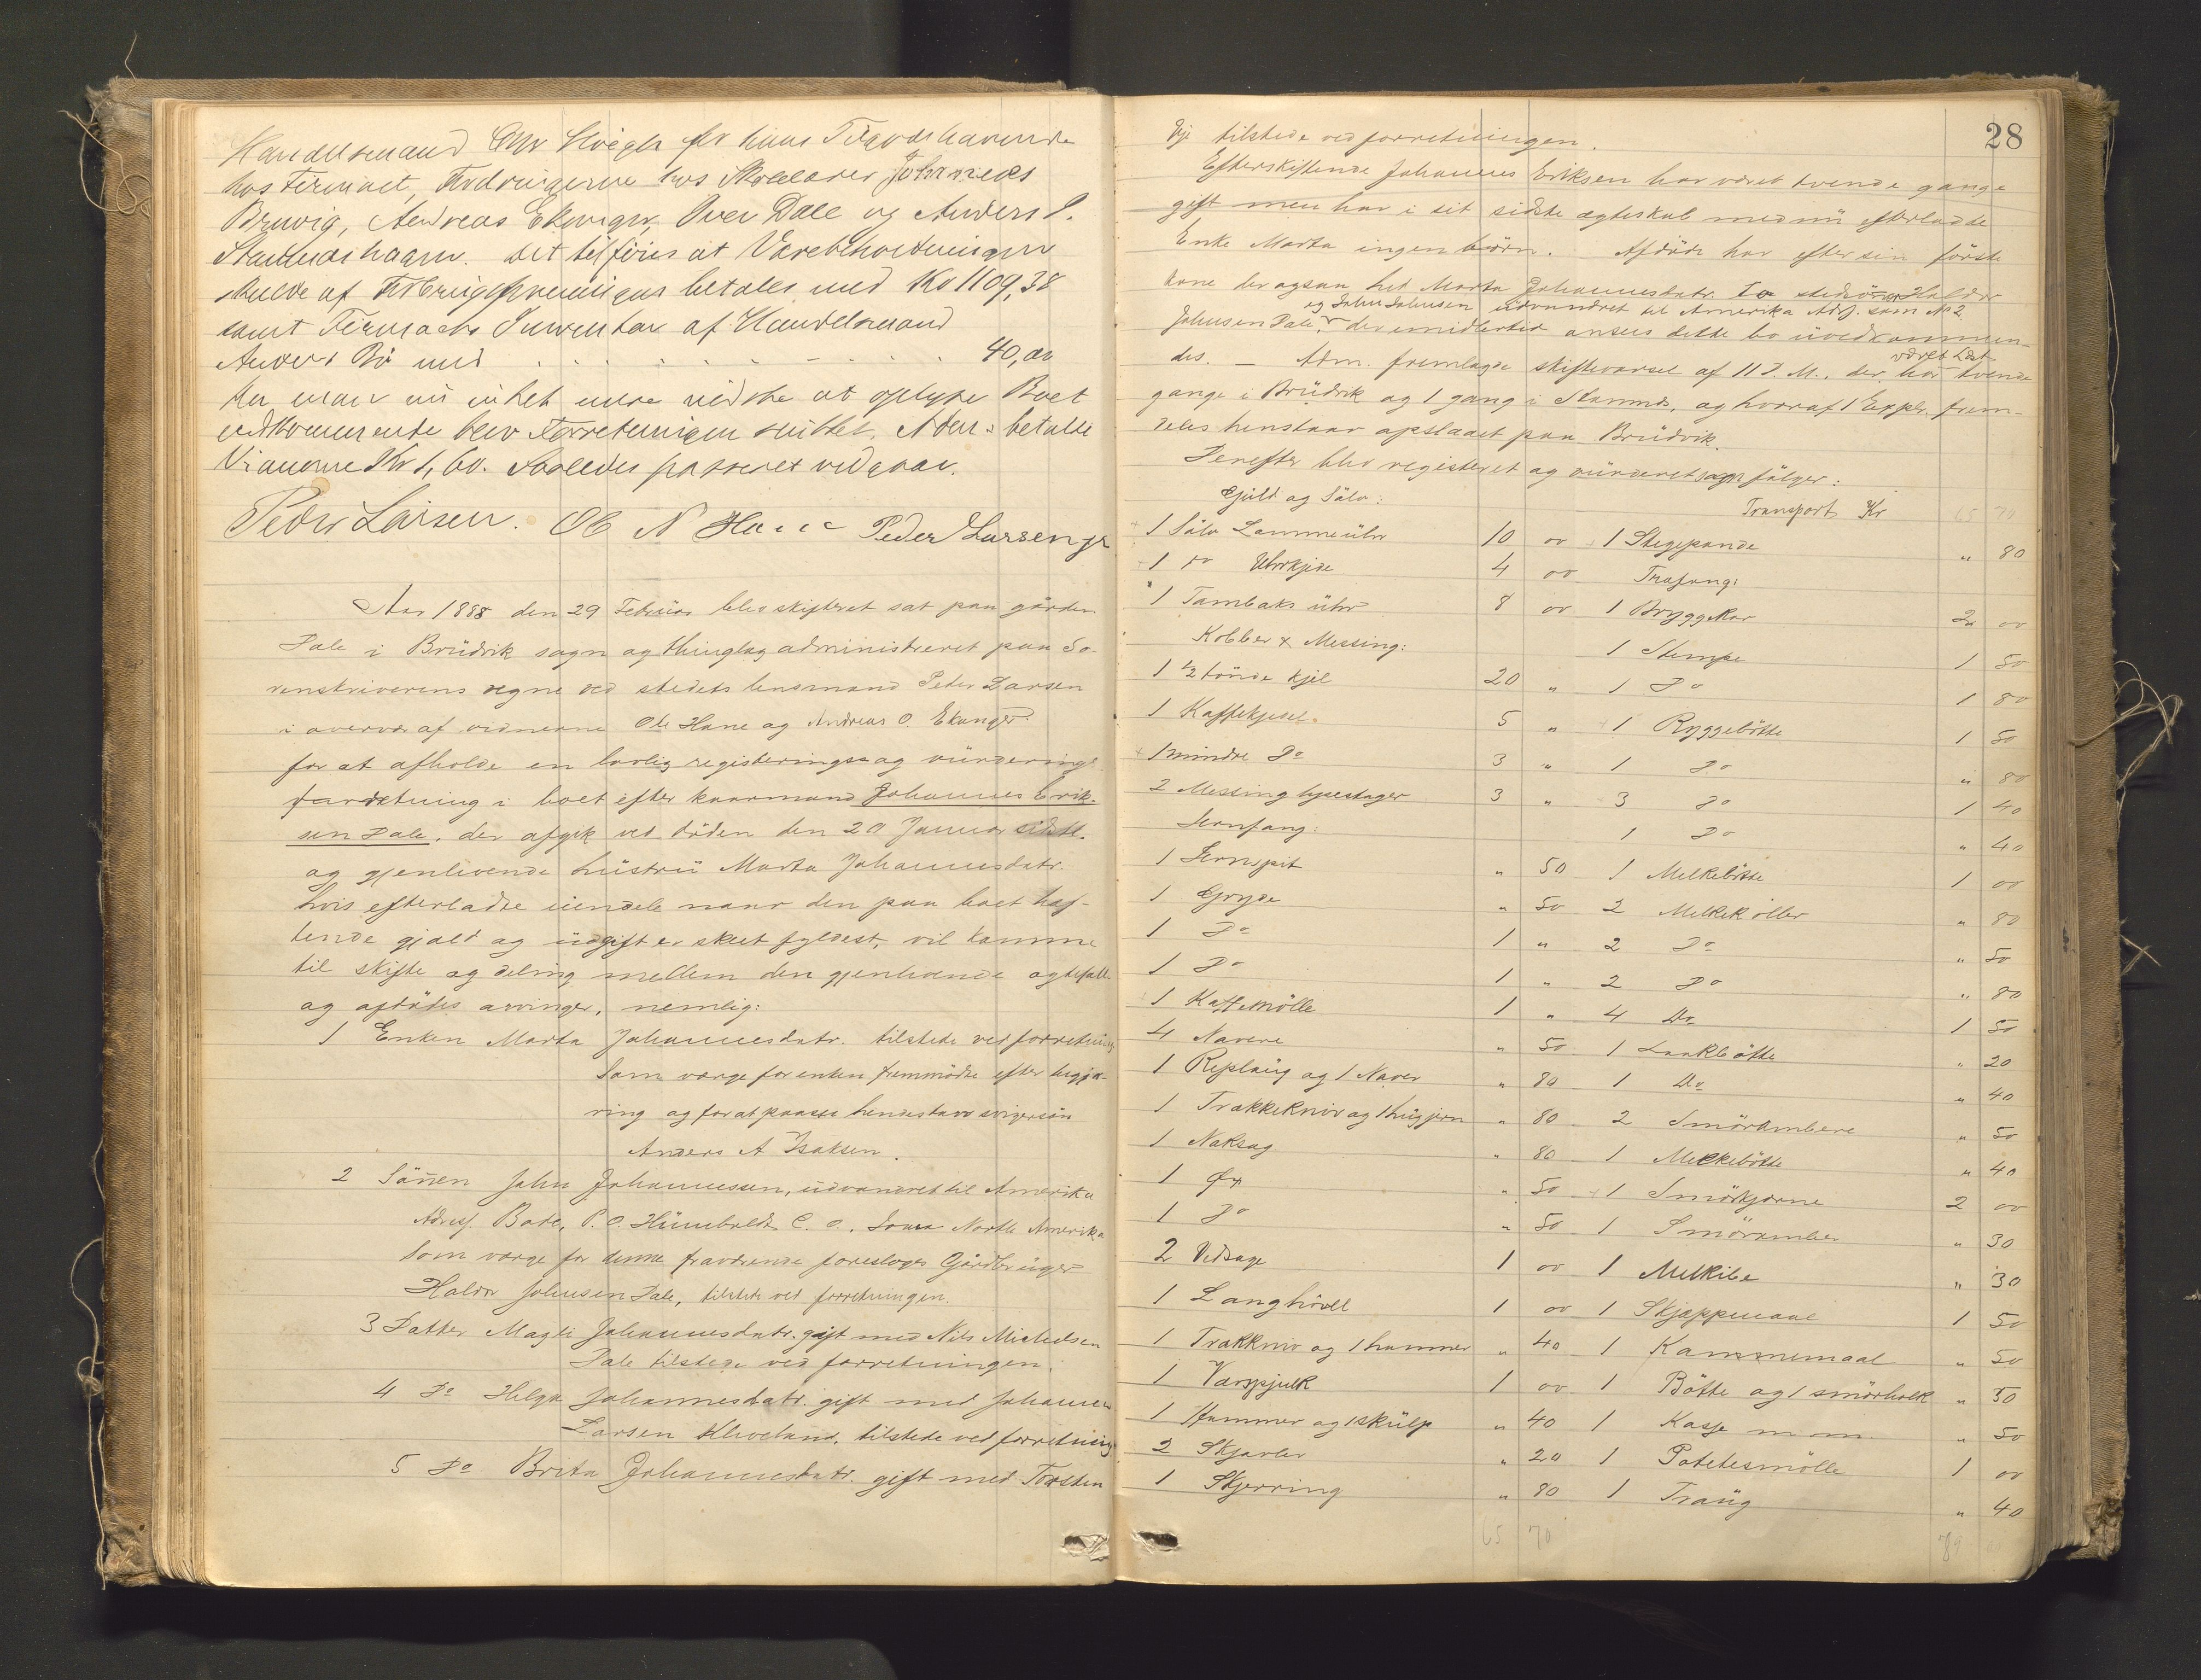 Handelsmand for hans Tilgodehavende
hos Firmaet, Fordringerne hos Skolelærer Johannes
Bruvig, Andreas Ekanger, Iver Dale og Anders J.
Stamneshagen. Det tilføies at Varebeholdningen
skulde af betales med Kr 1109,38
samt Firmaets Inventar af Handelsmand
Anders Bö med . . . . . . . 40,00
Da man nu intet mere vidste at oplyse Boet
vedkommende blev Forretningen sluttet. Adm. betalte
Vidnerne Kr 1,60. Saaledes passeret vidner.
Peder Larsen. Ole N Hane Peder Larsen jr
Aar 1888 den 29 Februar blev skifteret sat paa gården
Dale i Brüdvik sogn og thinglag administreret paa So-
renskriverens vegne ved stedets lensmand Peder Larsen
i overvær af vidnerne Ole Hane og Andreas O. Ekanger.
for at afholde en lovlig registerings og vürderings
forretning i boet efter kaarmand Johannes Erik-
sen Dale, der afgik ved döden den 20 Januar sidstl.
og gjenlevende hüstrü Marta Johannesdatr.
hvis efterladte eiendele naar den paa boet hef-
tende gjæld og üdgift er skeet fyldest, vil komme
til skifte og deling mellem den gjenlevende ægtefælle
og afdödes arvinger, nemlig:
1 Enken Marta Johannesdatr. tilstede ved forretning
Som værge for enken fremmödte efter begjæ-
ring og for at paasee hendes tarv svigersön
Anders A Isaksen.
2 Sönnen John Johannessen, üdvandret til Amerika
Adress. Bode, P.O. Hümboldt C.o., Iowa North Amerika
Som værge for denne fraværende foresloges Gårdbrüger
Haldor Johnsen Dale, tilstede ved forretningen.
3 Datter Magli Johannesdatr. gift med Nils Michelsen
Dale tilstede ved forretningen.
4 Do Helga Johannesdatr. gift med Johannes
Larsen Kleveland, tilstede ved forretning
5 Do Brita Johannesdatr. gift med Torsten
28
Eje tilstede ved forretningen.
Efterskiftende Johannes Eriksen har været tvende gange
gift men har i sit sidste ægteskab med nü efterladte
Enke Marta ingen börn. Afdöde har efter sin förste
kone der ogsaa hed Marta Johannesdatr. to stedsönner Haldor
og John Johnsen üdvandret til Amerika Adr. som No 2,
Johnsen Dale, der imidlertid ansees dette bo üvedkommen-
des. — Adm. fremlagde skiftevarsel af 11 d. M., der har været læst tvende
gange i Brüdvik og 1 gang i Stamnes, og hvoraf 1 Expl. frem-
deles henstaar opslaaet paa Brüdvik.
Derefter blev registeret og vürderet som fölger:
Güld og Sölv: Transport Kr 65 70
1 Sölv Lommeühr 10 00 1 Stegepande " 80
1 do Uhrkjede 4 00 Træfang:
1 Tambaks ühr 8 00 1 Bryggekar 2 00
Kobber & Messing: 1 Stampe 1 50
1 ½ tönde kjel 20 " 1 Do 1 80
1 Kaffekjedel 5 " 1 Ryggebötte 1 50
1 mindre Do 3 " 1 Do " 80
2 Messing lysestager 3 " 3 Do 1 40
Jernfang: 1 Do " 40
1 Jernspit " 50 1 Melkebötte 1 00
1 Gryde " 50 2 Melkekoller " 80
1 Do 1 " 2 Do " 50
1 Do 1 " 2 Do " 80
1 Kaffemölle 1 " 4 Do 1 50
4 Navere " 50 1 Laakbötte " 20
1 Replaüg og 1 Naver " 80 1 Do " 40
1 Trækkekniv og 1 hügjern " 80 2 Smörambere " 50
1 Naksag " 80 1 Melkebötte " 40
1 Öx " 50 1 Smörkjærne 2 00
1 Do " 50 1 Smöramber " 30
2 Vedsage 1 00 1 Melkibe " 30
1 Langhövel 1 00 1 Skjæppemaal 1 50
1 Trækkniv og 1 hammer " 40 1 Kammemaal " 50
1 1 00 1 Bötte og 1 smörholk " 50
1 Hammer og 1 skülp " 40 1 Kasse m. m. " 50
2 Skjærler " 20 1 Potetesmölle 1 00
1 Skjerring " 80 1 Traüg " 40
65 70